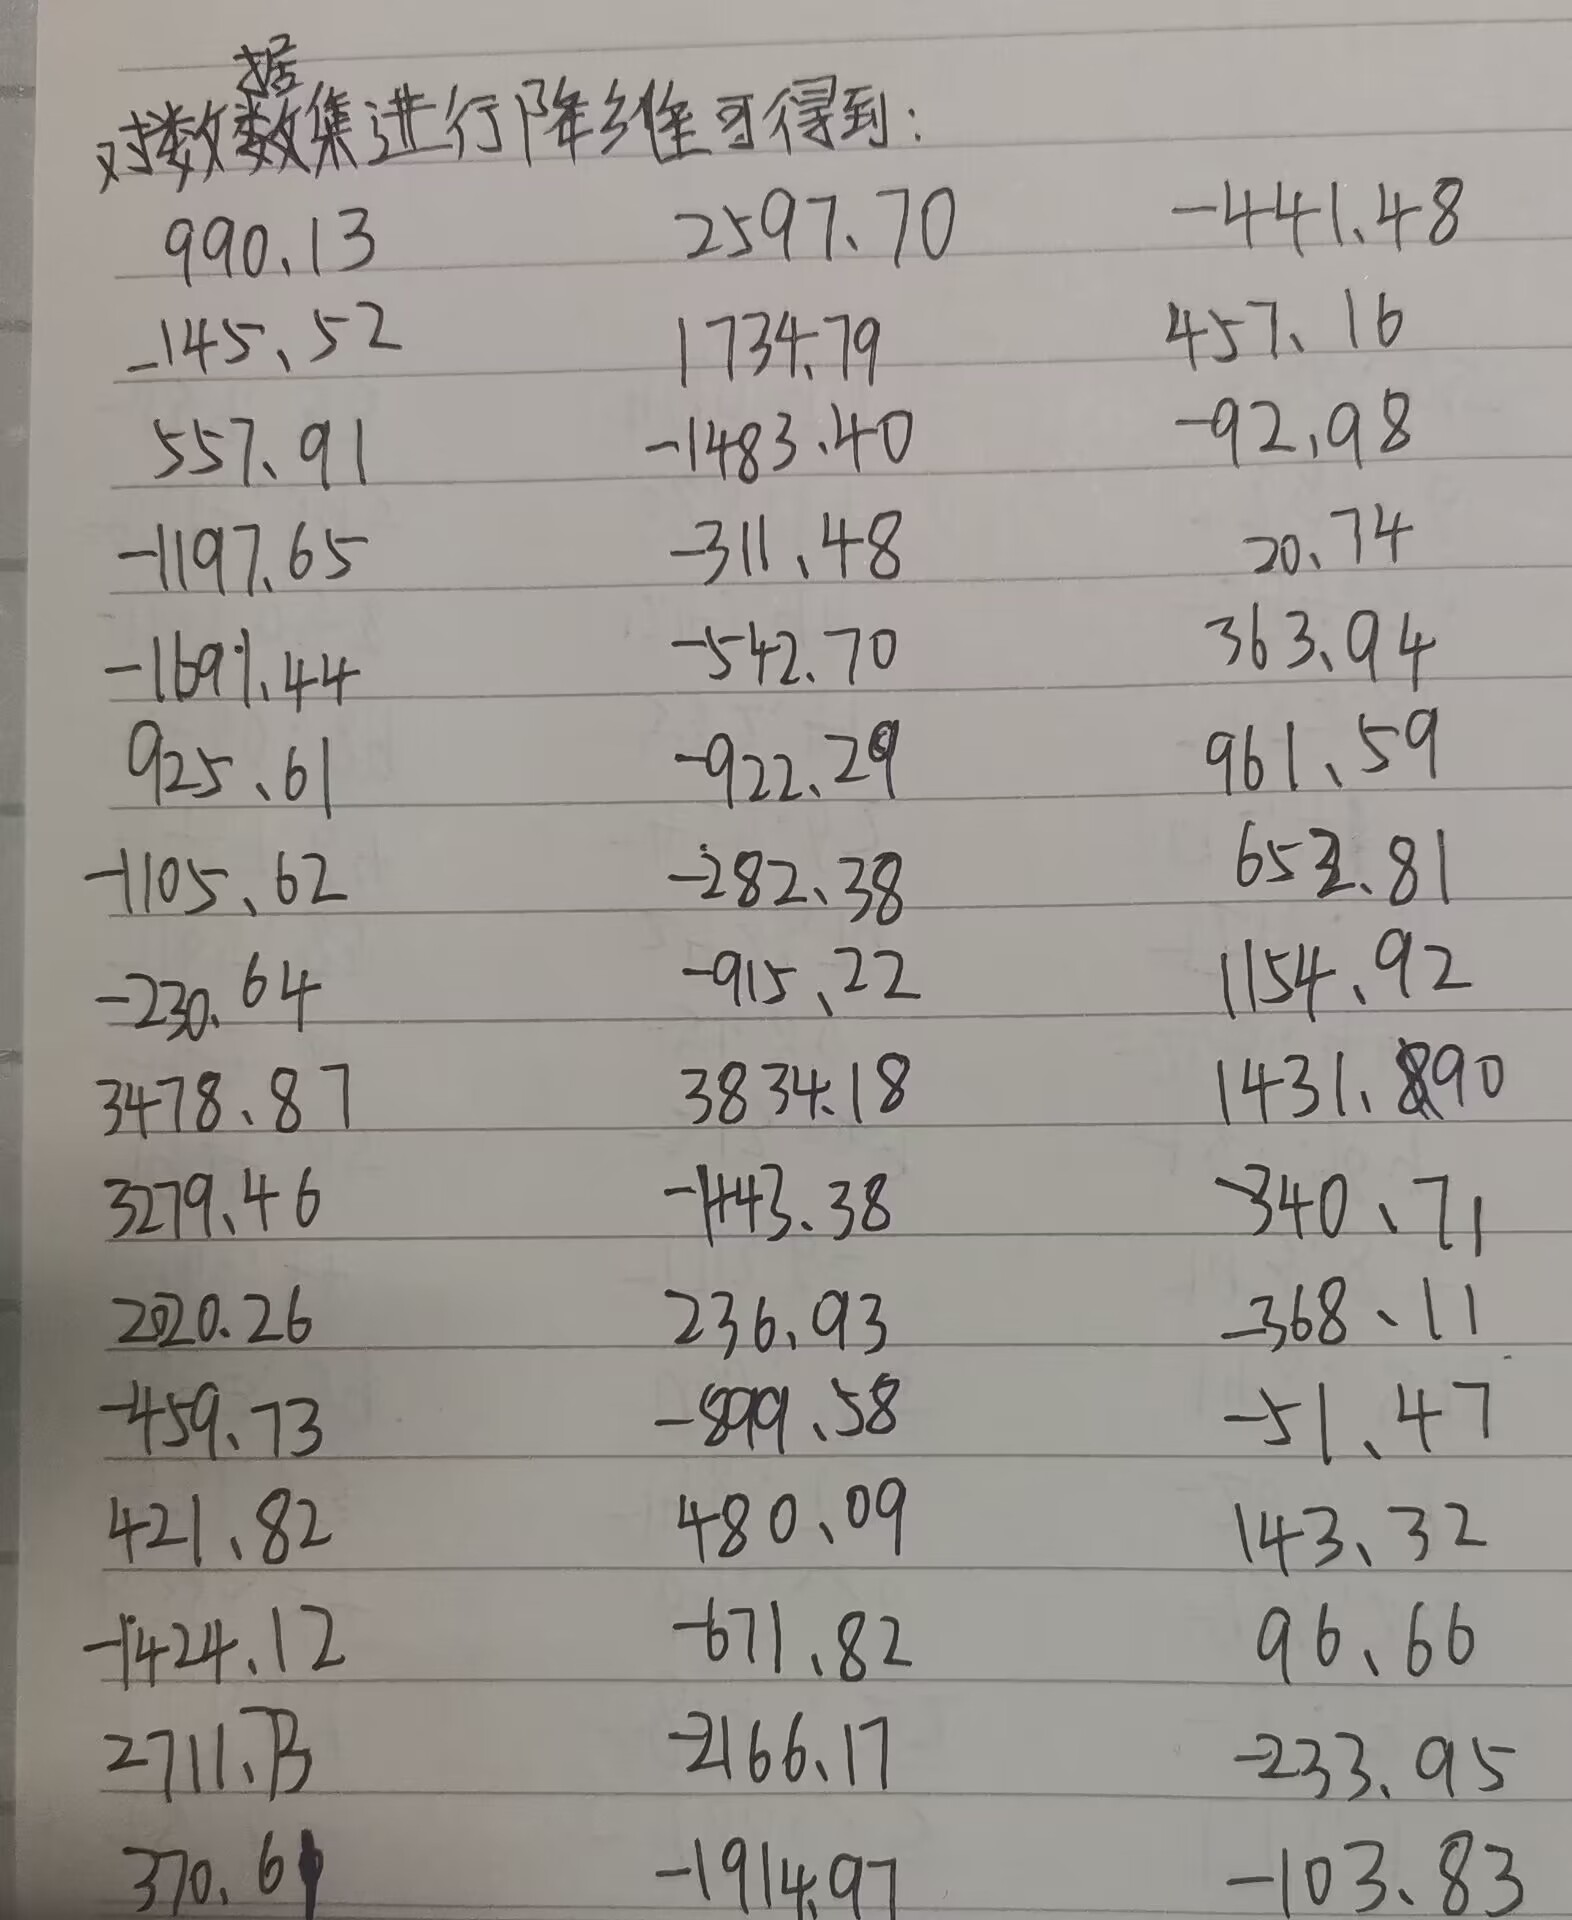 对数据集进行降维可得到：
990.13 2597.70 -441.48
-145.52 1734.79 457.16
557.91 -1483.40 -92.98
-1197.65 -311.48 20.74
-1691.44 -542.70 363.94
925.61 -922.29 961.59
-1105.62 -282.38 652.81
-230.64 -915.22 1154.92
3478.87 3834.18 1431.90
3279.46 -1443.38 -340.71
2020.26 236.93 -368.11
-459.73 -899.58 -51.47
421.82 480.09 143.32
-1424.12 -671.82 96.66
2711.73 -2166.17 -233.95
370.61 -1914.97 -103.83